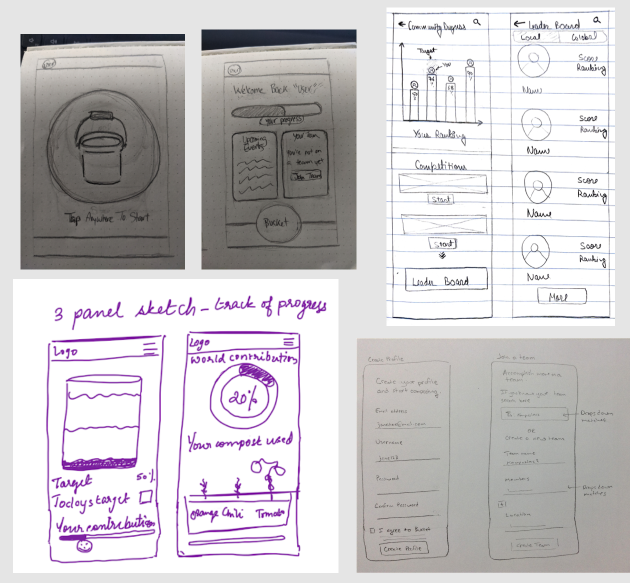 Tap Anywhere To Start
Welcome Back "User!"
Your progress
Upcoming
Events
Your team
You're not on
a team yet
Join Team
Bucket
Community Progress
Target
You
Your Ranking
Competitions
Start
Start
Leader Board
Leader Board
Local
Global
Score
Ranking
Name
Score
Ranking
Name
Score
Ranking
Name
Score
Ranking
Name
More
3 panel sketch - track of progress
Logo
Target 50%
Todays target
Your contribution
Logo
World contribution
20%
Your compost used
Orange Chili Tomato
Create Profile
Create your profile
and start composting
Email address
Username
Password
Confirm Password
I agree to Bucket
Create Profile
Join a team
Accomplish more as a
team
OR
Create a new team
Team name
Members
Location
Create Team
Drops down
matches
Drops down
matches